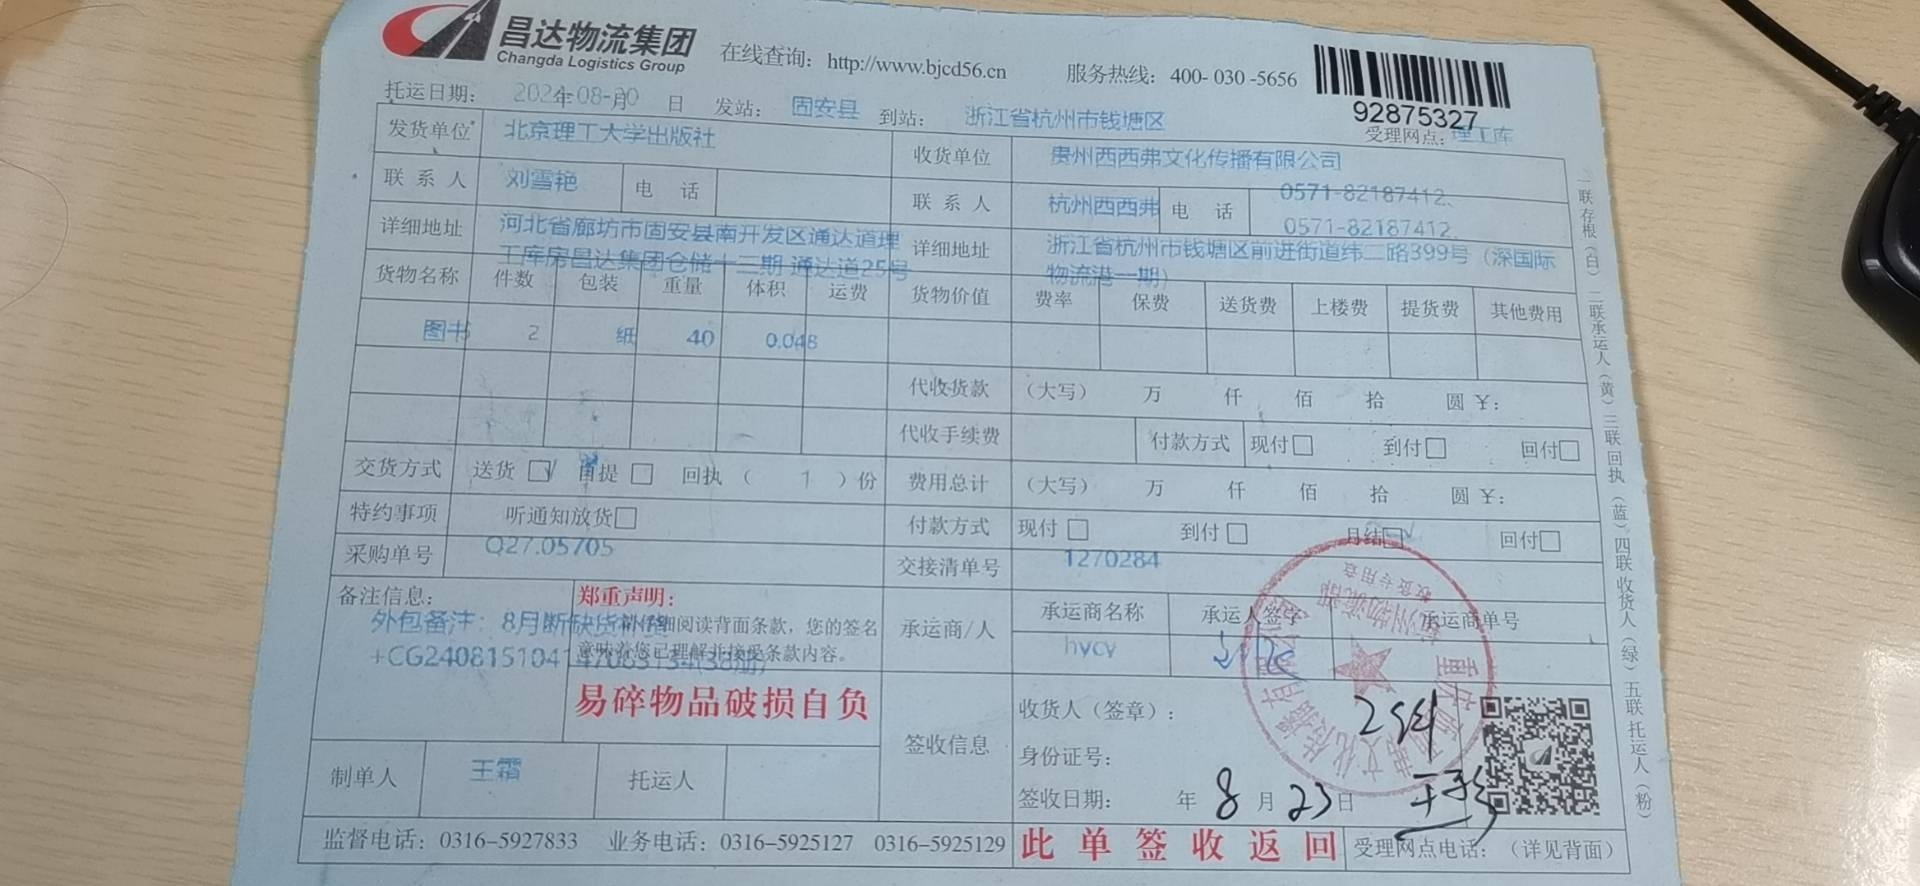 昌达物流集团
Changda Logistics Group
在线查询：http://www.bjcd56.cn
服务热线：400-030-5656
92875327
受理网点：理工库
托运日期： 年 月 日 发站：固安县 到站：浙江省杭州市钱塘区
发货单位 北京理工大学出版社 收货单位 贵州西西弗文化传播有限公司
联系人 刘雪艳 电话 联系人 杭州西西弗 电话 0571-82187412、
0571-82187412、
详细地址 河北省廊坊市固安县南开发区通达道理
工库房昌达集团仓储十二期 通达道25号
详细地址 浙江省杭州市钱塘区前进街道纬二路399号（深国际
物流港一期）
货物名称 件数 包装 重量 体积 运费 货物价值 费率 保费 送货费 上楼费 提货费 其他费用
图书 2 纸 40 0.048
代收货款 （大写） 万 仟 佰 拾 圆 ¥：
代收手续费 付款方式 现付□ 到付□ 回付□
交货方式 送货☑ 自提□ 回执（1）份 费用总计 （大写） 万 仟 佰 拾 圆 ¥：
特约事项 听通知放货□ 付款方式 现付□ 到付□ 月结☑ 回付□
采购单号 Q27.05705 交接清单号 1270284
备注信息：
外包备注：8月断缺货补货
郑重声明：
请仔细阅读背面条款，您的签名
意味着您已理解并接受条款内容。
易碎物品破损自负
承运商/人 承运商名称 承运人签字 承运商单号
hycy
签收信息 收货人（签章）：
2件
身份证号：
签收日期： 年 8 月 23 日
制单人 王霜 托运人
监督电话：0316-5927833 业务电话：0316-5925127 0316-5925129 此单签收返回 受理网点电话：（详见背面）
一联存根（白）二联承运人（黄）三联回执（蓝）四联收货人（绿）五联托运人（粉）